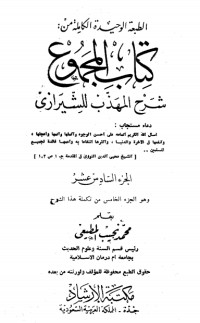 الطبعة الوحيدة الكاملة من:
كتاب المجموع
شرح المهذب للشيرازي
دعاء مستجاب :
نسأل الله الكريم اتمامه على احسن الوجوه وأكملها وأتمها وأعجلها
وأنفعها في الآخرة والدنيا ، وأكثرها انتفاعا به وأعمها فائدة لجميع
المسلمين ..
[ الشيخ محيي الدين النووى فى المقدمة ج ١ ص ٦ ]
الجزء السادس عشر
وهو الجزء الخامس من تكملة هذا الشرح
بقلم
محمد نجيب المطيعي
رئيس قسم السنة وعلوم الحديث
بجامعة ام درمان الاسلامية
حقوق الطبع محفوظة للمؤلف ولورثته من بعده
مكتبة الإرشاد
جدة - المملكة العربية السعودية